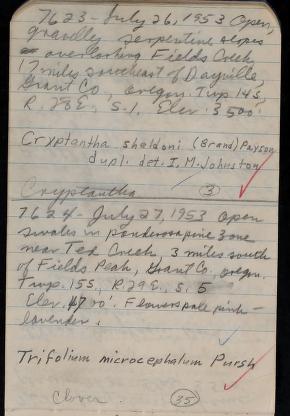 7623 - July 26, 1953 Open,
gravelly serpentine slopes
overlooking Fields Creek
17 miles southeast of Dayville,
Grant Co, Oregon. Twp 14S,
R. 28E, S. 1, Elev. 3500'
Cryptantha sheldoni (Brand) Payson
dupl. det. I. M. Johnston
Cryptantha (3)
7624 - July 27, 1953 Open
swales in ponderosa pine zone
near Ted Creek 3 miles south
of Fields Peak, Grant Co. Oregon.
Twp. 15S, R. 29E, S. 5
Elev. 4700'. Flowers pale pink-
lavender.
Trifolium microcephalum Pursh
Clover. (35)